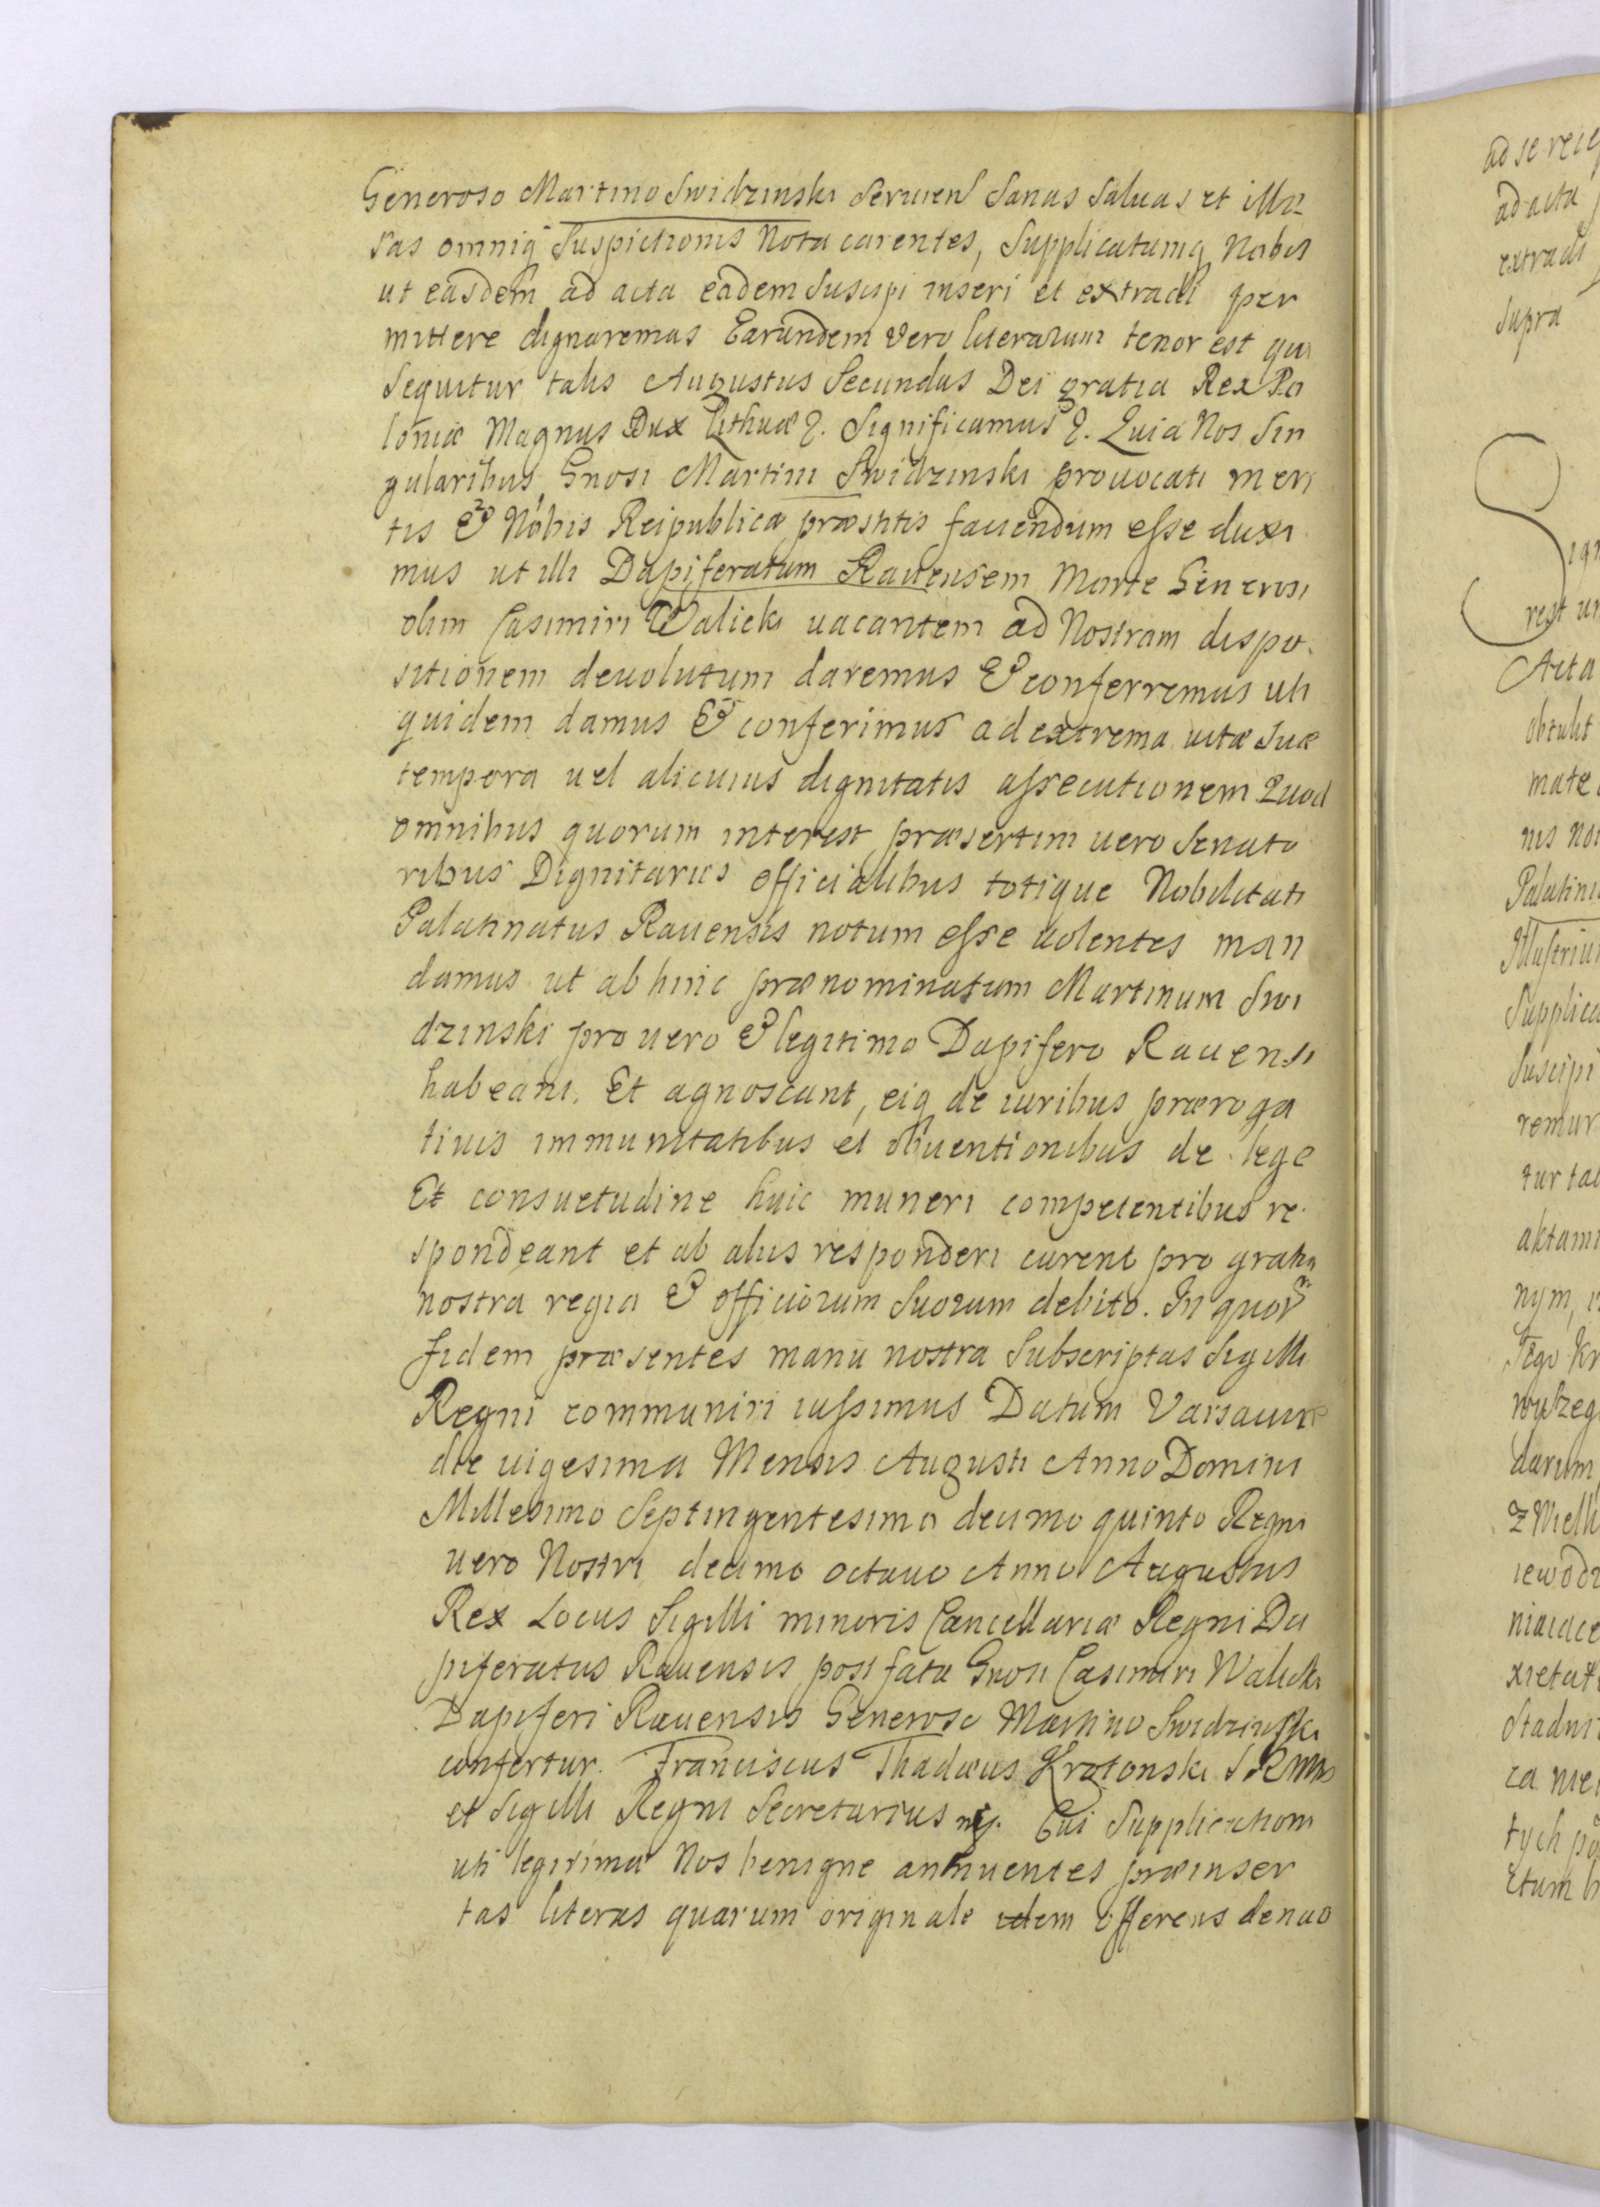 Generoso Martino Swidzinski Seruien Sanas Saluas et illæ
sas omniq Suspictionis Nota carentes, Supplicatumq Nobis
ut easdem ad acta eadem Suscipi inseri et extradi per
mittere dignaremus Earundem vero literarum tenor est qui
Sequitur talis Augustus Secundus Dei gratia Rex Po
loniæ Magnus Dux Lithuæ &. Significamus &. Quia Nos Sin
gularibus Gnosi Martini Swidzinski prouocati meri
tis & Nobis Reipublicæ præstitis fauendum esse duxi
mus ut illi Dapiferatum Rauensem Morte Generosi
olim Casimiri Walicki uacantem ad Nostram dispo.
sitionem deuolutum daremus & conferremus uti
quidem damus & conferimus ad extrema uitæ Suæ
tempora uel alicuius dignitatis assecutionem Quod
omnibus quorum interest præsertim uero Senato
ribus Dignitariis officialibus totique Nobilitati
Palatinatus Rauensis notum esse uolentes man
damus ut ab hinc prænominatum Martinum Swi
dzinski pro uero & legitimo Dapifero Rauensi
habeant. Et agnoscant, eiq de iuribus præroga
tiuis immunitatibus et obuentionibus de lege
Et consuetudine huic muneri competentibus re.
spondeant et ab aliis responderi curent pro gratia
nostra regia & officiorum Suorum debito. In quor
fidem præsentes manu nostra Subscriptas Sigilli
Regni communiri iussimus Datum Varsauiæ
die uigesima Mensis Augusti Anno Domini
Millesimo Septingentesimo decimo quinto Regni
uero Nostri decimo octauo Anno Augustus
Rex Locus Sigilli minoris Cancellariæ Regni Da
piferatus Rauensis post fata Gnosi Casimiri Walicki
Dapiferi Rauensis Generoso Martino Swidzinski
confertur. Franciscus Thadæus
et Sigilli Regni Secretarius Cui Supplicationi
uti legitimæ Nos benigne annuentes præinser
tas literas quarum originale idem offerens denuo
ad acta
extradi
Supra
Acta
obtulit
mate
nis
Supplica
Suscipi
remur
nym,
darum